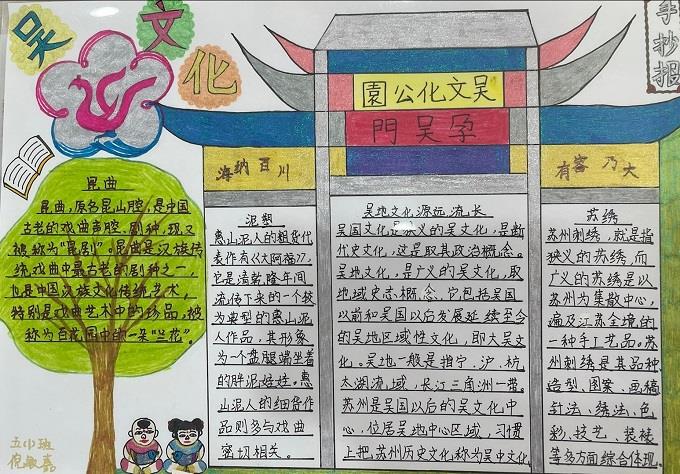 吴
文
化
手抄报
園公化文吴
門吴孕
海纳百川
有容乃大
昆曲
昆曲，原名昆山腔，是中国
古老的戏曲声腔、剧种，现又
被称为“昆剧”。昆曲是汉族传
统戏曲中最古老的剧种之一，
也是中国汉族文化传统艺术，
特别是戏曲艺术中的珍品，被
称为百花园中的一朵“兰花”。
五(1)班
倪敏嘉
泥塑
惠山泥人的粗货代
表作有《大阿福》，
它是清乾隆年间
流传下来的一个较
为典型的惠山泥
人作品，其形象
为一个盘腿端坐着
的胖泥娃娃。惠
山泥人的细货作
品则多与戏曲
密切相关。
吴地文化源远流长
吴国文化是狭义的吴文化，是断
代史文化，这是取其政治概念。
吴地文化，是广义的吴文化，取
地域史态概念，它包括吴国
以前和吴国以后发展延续至今
的吴地区域性文化，即大吴文
化。吴地一般是指宁、沪、杭
太湖流域，长江三角洲一带。
苏州是吴国以后的吴文化中
心，位居吴地中心区域，习惯
上把苏州历史文化称为吴中文化
苏绣
苏州刺绣，就是指
狭义的苏绣，而
广义的苏绣是以
苏州为集散中心，
遍及江苏全境的
一种手工艺品。苏
州刺绣是其品种、
造型、图案、画稿、
针法、绣法、色
彩、技艺、装裱
等多方面综合体现。